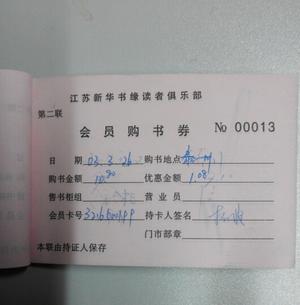 江苏新华书缘读者俱乐部
第二联
会员购书券 No 00013
日期 03.3.26 购书地点 泰州
购书金额 10.80 优惠金额 1.08
售书柜组 营业员
会员卡号 持卡人签名
门市部章
本联由持证人保存